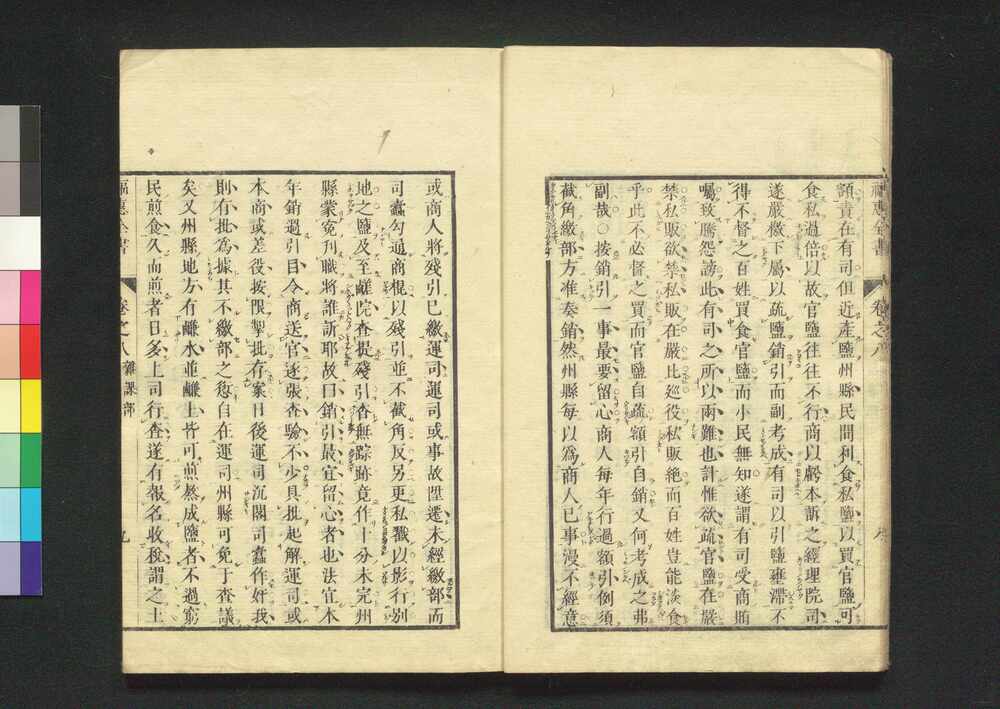 福惠全書 卷之八
額責在有司但近產鹽州縣民間利食私鹽以買官鹽可
食私過倍以故官鹽往往不行商以虧本訴之經理院司
遂嚴檄下屬以疏鹽銷引而副考成有司以引鹽壅滯不
得不督之百姓買食官鹽而小民無知遂謂有司受商賄
囑致騰怨謗此有司之所以兩難也計惟欲疏官鹽在嚴
禁私販欲禁私販在嚴比巡役私販絶而百姓豈能淡食
乎此不必督之買而官鹽自疏額引自銷又何考成之弗
副哉○按銷引一事最要留心商人每年行過額引例須
截角繳部方准奏銷然州縣每以為商人已事漫不經意
或商人將殘引已繳運司運司或事故陞遷未經繳部而
司蠹勾通商棍以殘引並不截角反另更私戳以影行別
地之鹽及至鹺院查提殘引杳無踪跡竟作十分未完州
縣蒙寃刋職將誰訴耶故曰銷引最宜留心者也法宜本
年銷過引目令商送官逐張查騐不少具批起解運司或
本商或差役按限掣批存案日後運司沉閣司蠹作奸我
則有批為據其不繳部之愆自在運司州縣可免于查議
矣又州縣地方有鹻水並鹻土皆可煎熬成鹽者不過窮
民煎食久而煎者日多上司行查遂有報名收稅謂之土
福惠全書 卷之八 雜課部 九